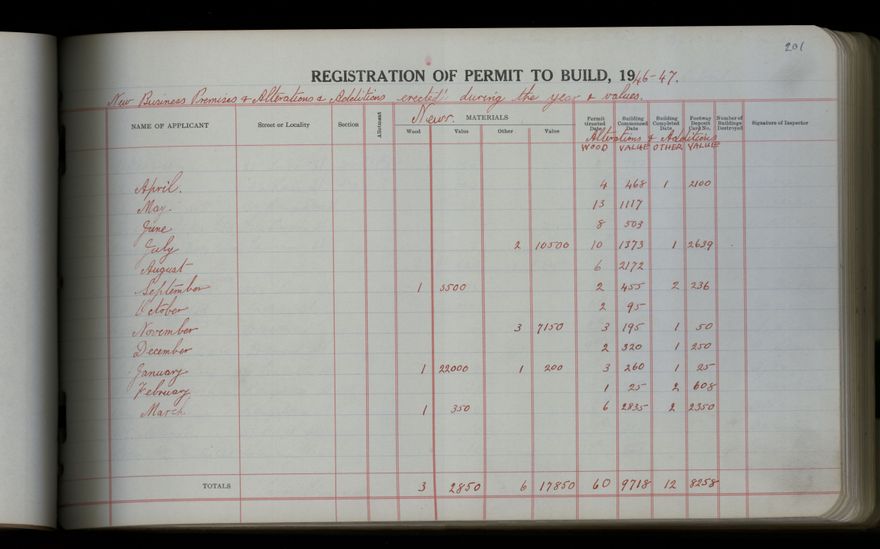 201
REGISTRATION OF PERMIT TO BUILD, 1946-47.
New Business Premises & Alterations & Additions erected during the year & values.
NAME OF APPLICANT Street or Locality Section Allotment New. MATERIALS Permit Building Commenced Date Building Completed Date Footway Deposit Card No. Number of Buildings Destroyed Signature of Inspector
Wood Value Other Value Alterations & Additions
WOOD VALUE OTHER VALUE
April. 4 468 1 2100
May. 13 1117
June 8 503
July 2 10500 10 1373 1 2639
August 6 2172
September 1 5500 2 455 2 236
October 2 95
November 3 7150 3 195 1 50
December 2 320 1 250
January 1 22000 1 200 3 260 1 25
February 1 25 2 608
March 1 350 6 2835 2 2350
TOTALS 3 2850 6 17850 60 9718 12 8258